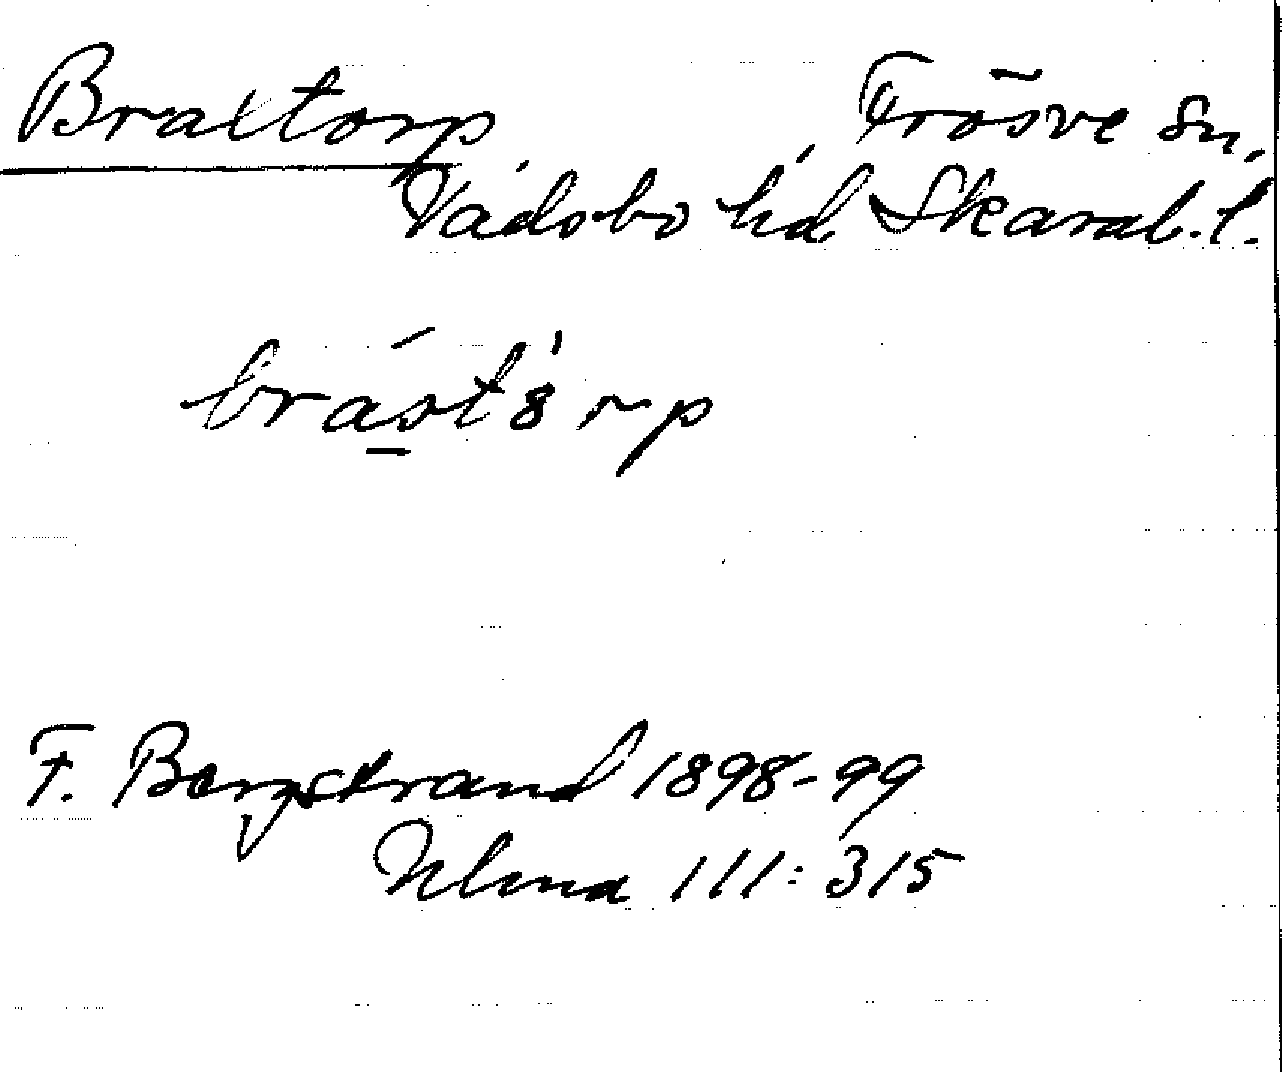 Braxtorp Frösve Sn,
Vadsbo hd Skarab. l.
brást8rp
F. Bergstrand 1898-99
Ulma 111:315